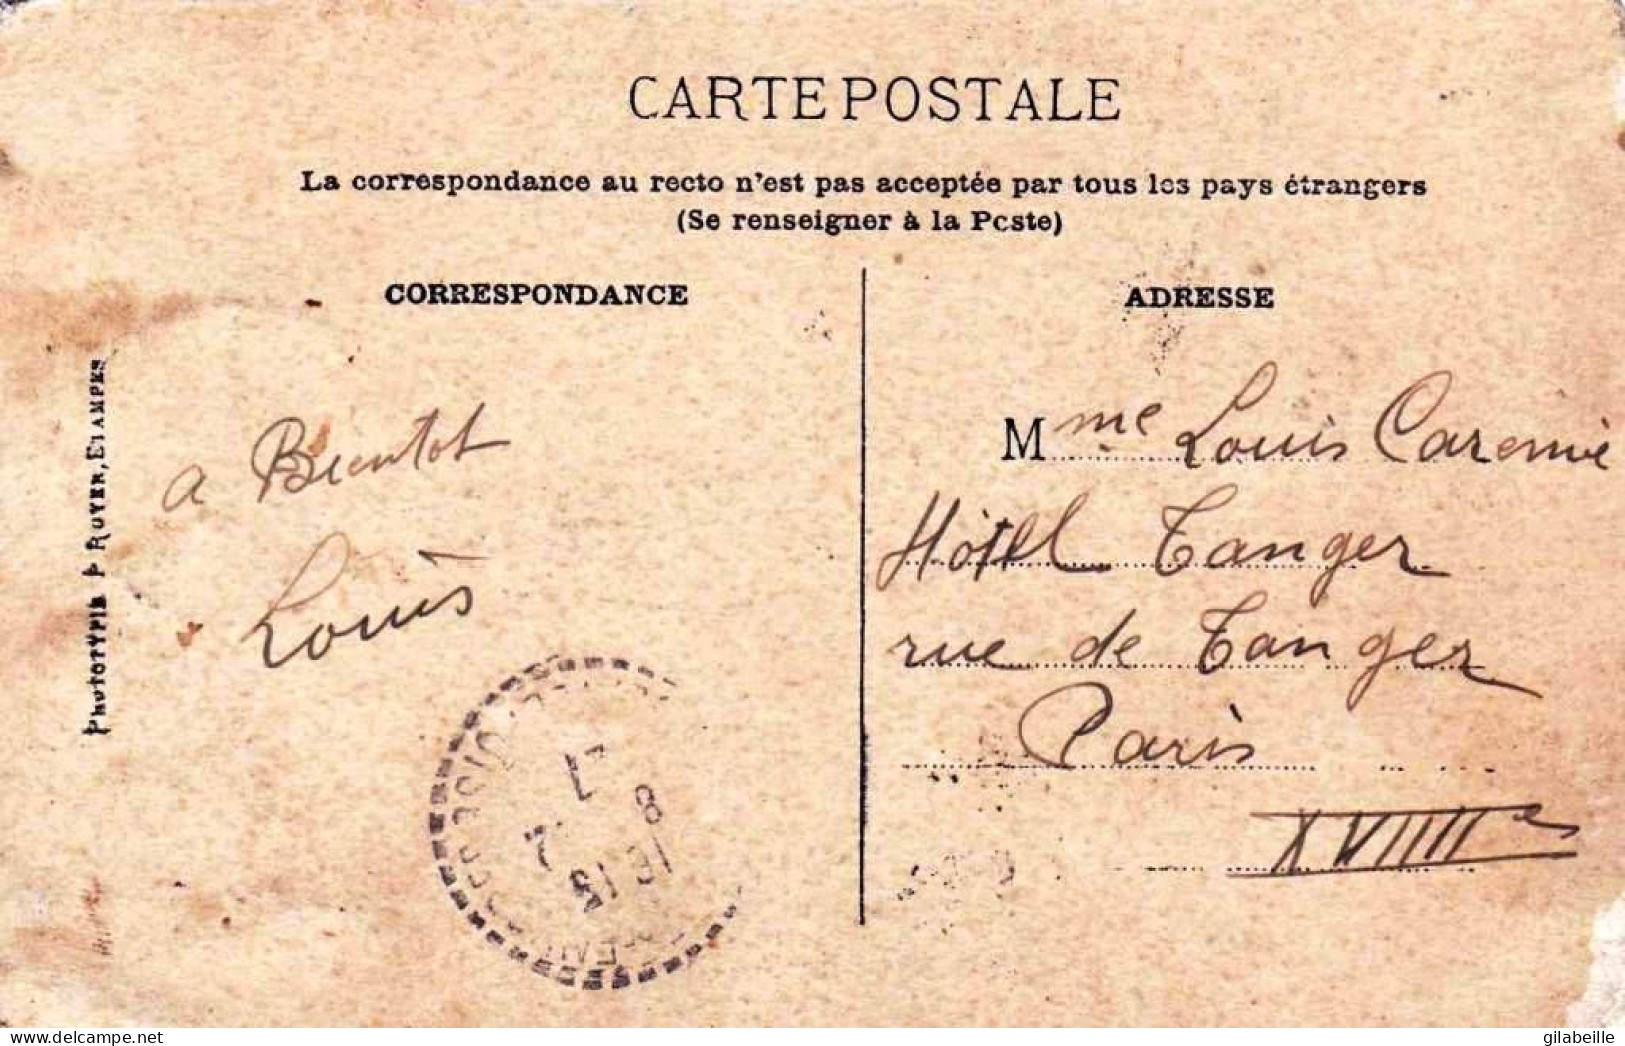 CARTE POSTALE
La correspondance au recto n'est pas acceptée par tous les pays étrangers
(Se renseigner à la Poste)
CORRESPONDANCE
ADRESSE
PHOTOTYPIE P ROYER, ETAMPES
a Bientot
Louis
Mme Louis
Hôtel Tanger
rue de Tanger
Paris
XVIIIIe
www.delcampe.net
gilabeille